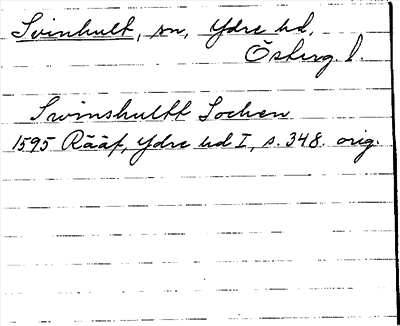 Svinhult, sn, Ydre hd,
Österg. l.
Swinshultt Sochen
1595 Rääf, Ydre hd I, s. 348. orig.